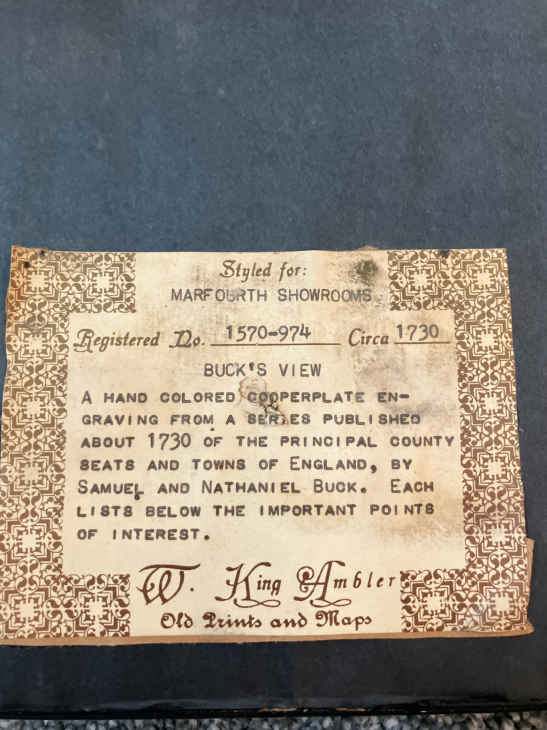 Styled for:
MARFOURTH SHOWROOMS
Registered No. 1570-974 Circa 1730
BUCK'S VIEW
A HAND COLORED COOPERPLATE EN-
GRAVING FROM A SERIES PUBLISHED
ABOUT 1730 OF THE PRINCIPAL COUNTY
SEATS AND TOWNS OF ENGLAND, BY
SAMUEL AND NATHANIEL BUCK. EACH
LISTS BELOW THE IMPORTANT POINTS
OF INTEREST.
W. King Ambler
Old Prints and Maps